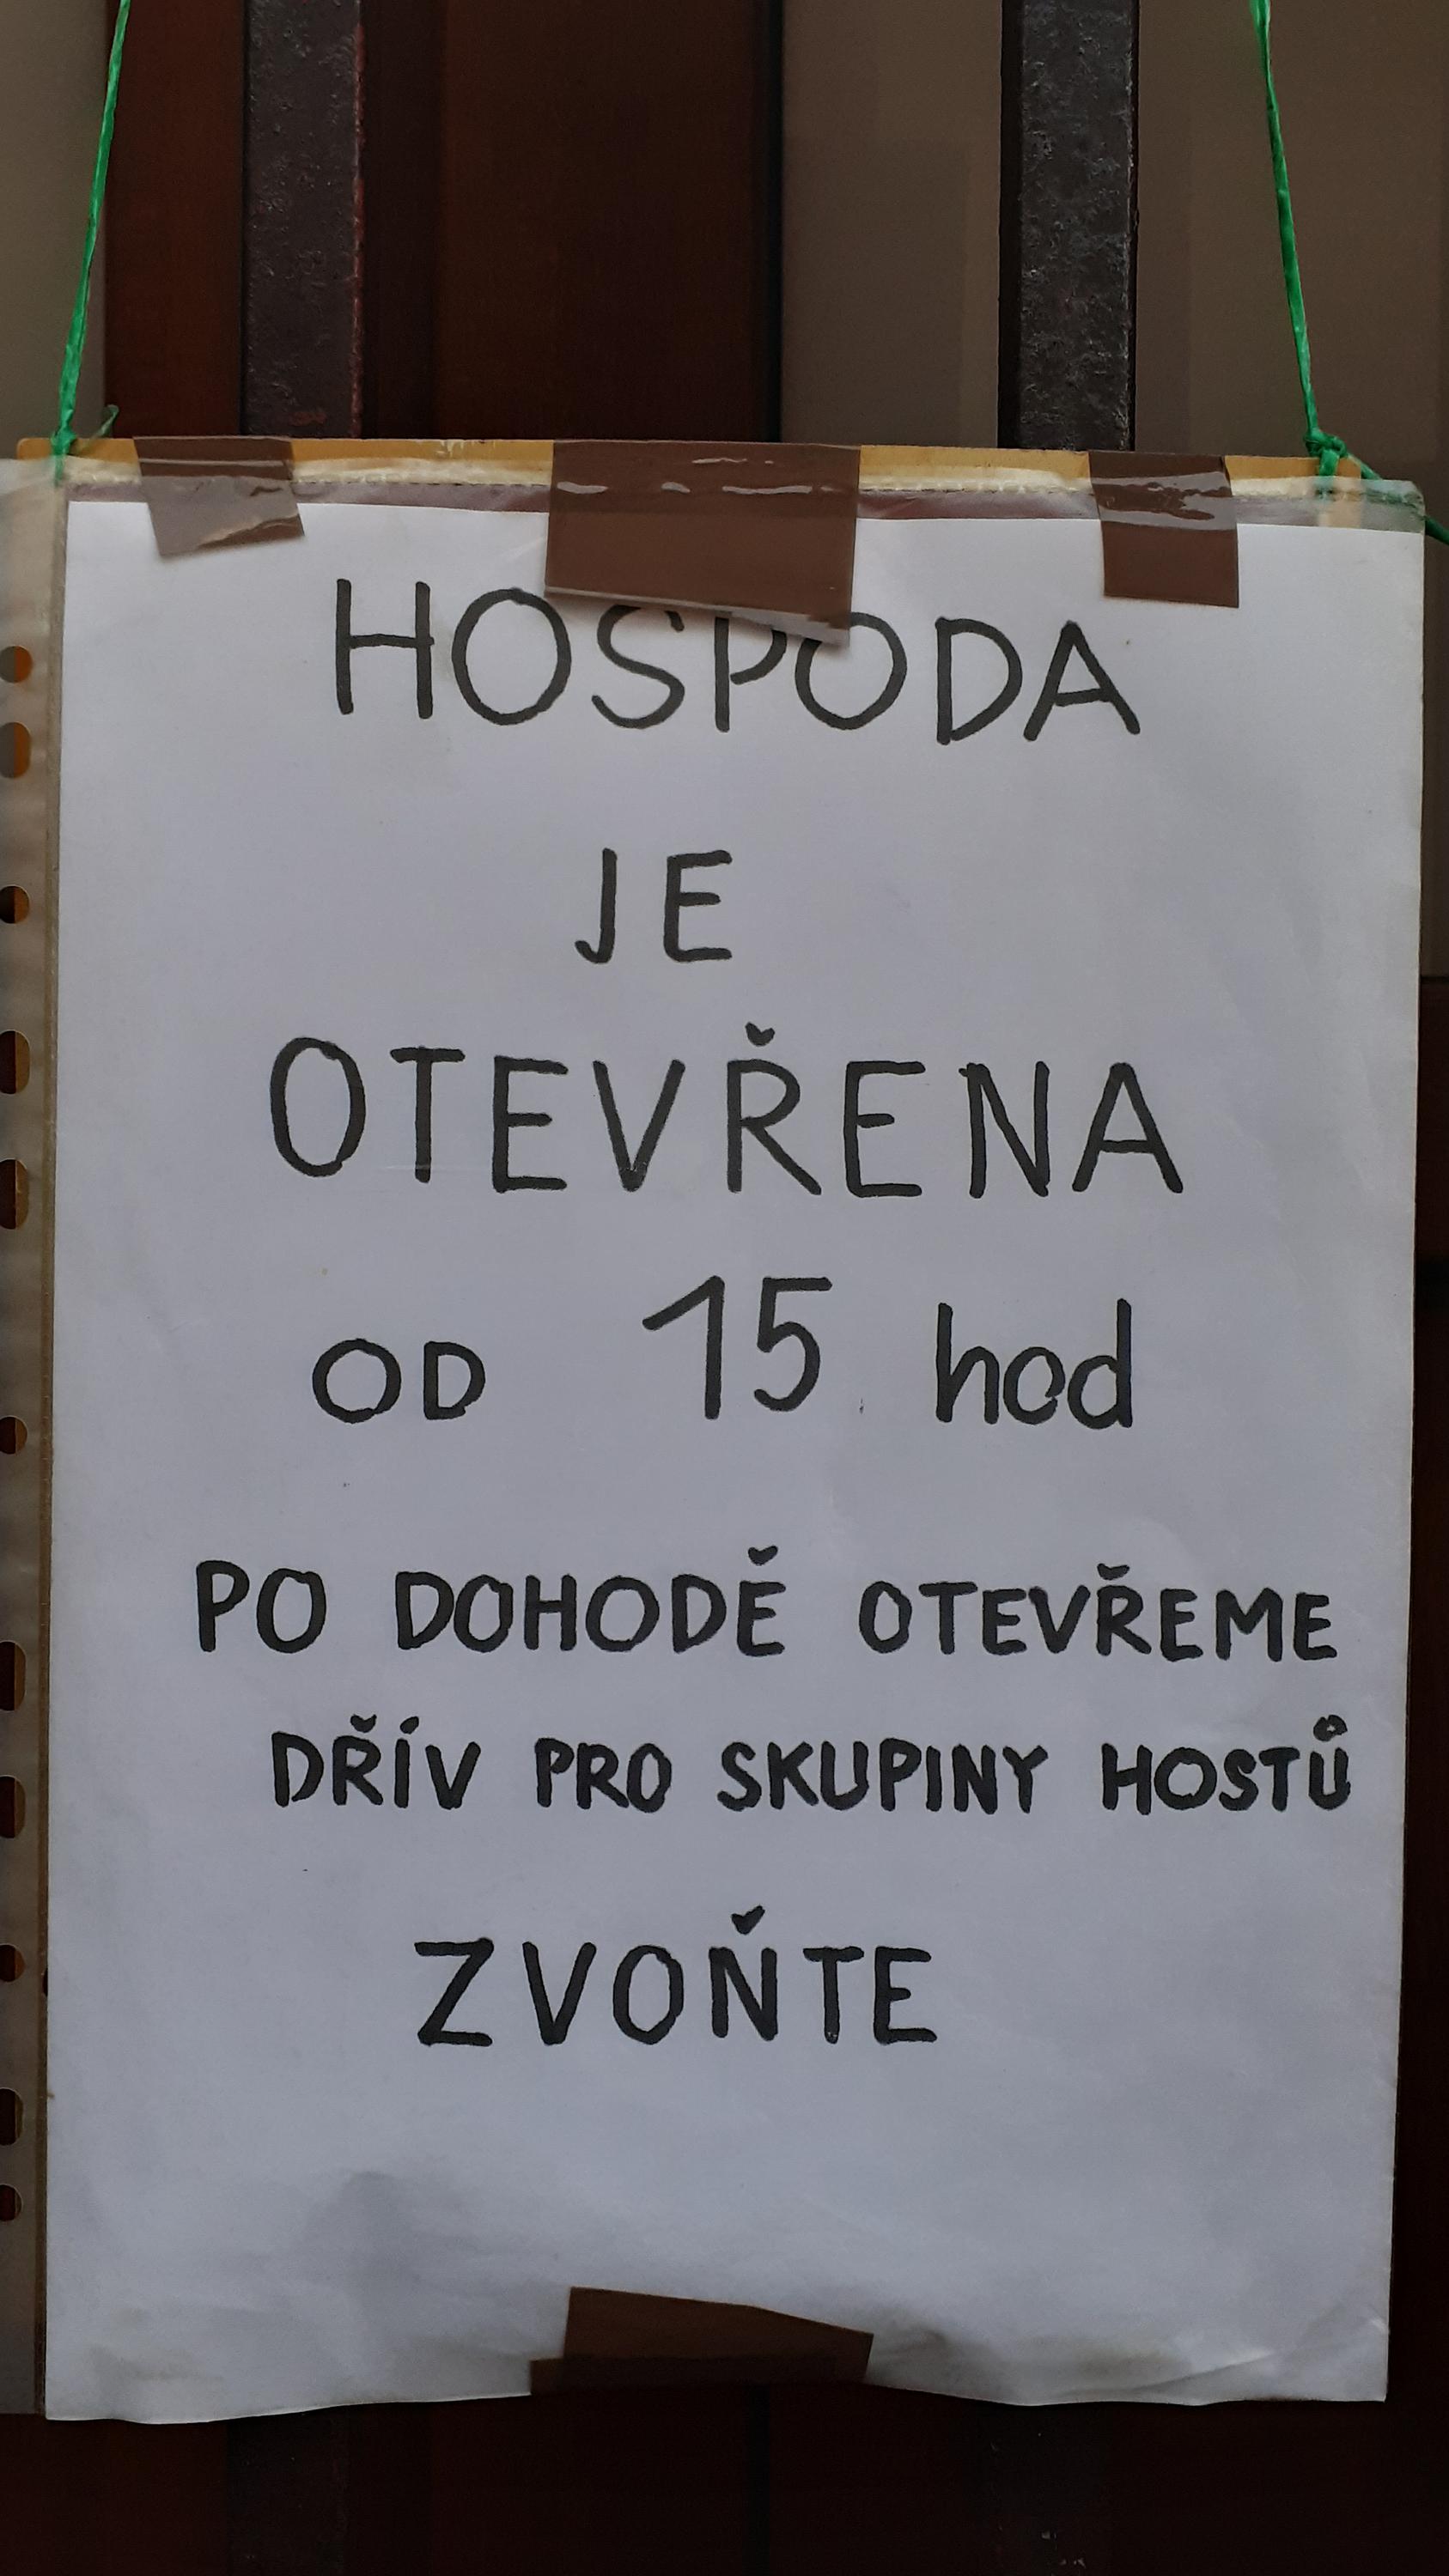 HOSPODA
JE
OTEVŘENA
OD 15 hod
PO DOHODĚ OTEVŘEME
DŘÍV PRO SKUPINY HOSTŮ
ZVOŇTE